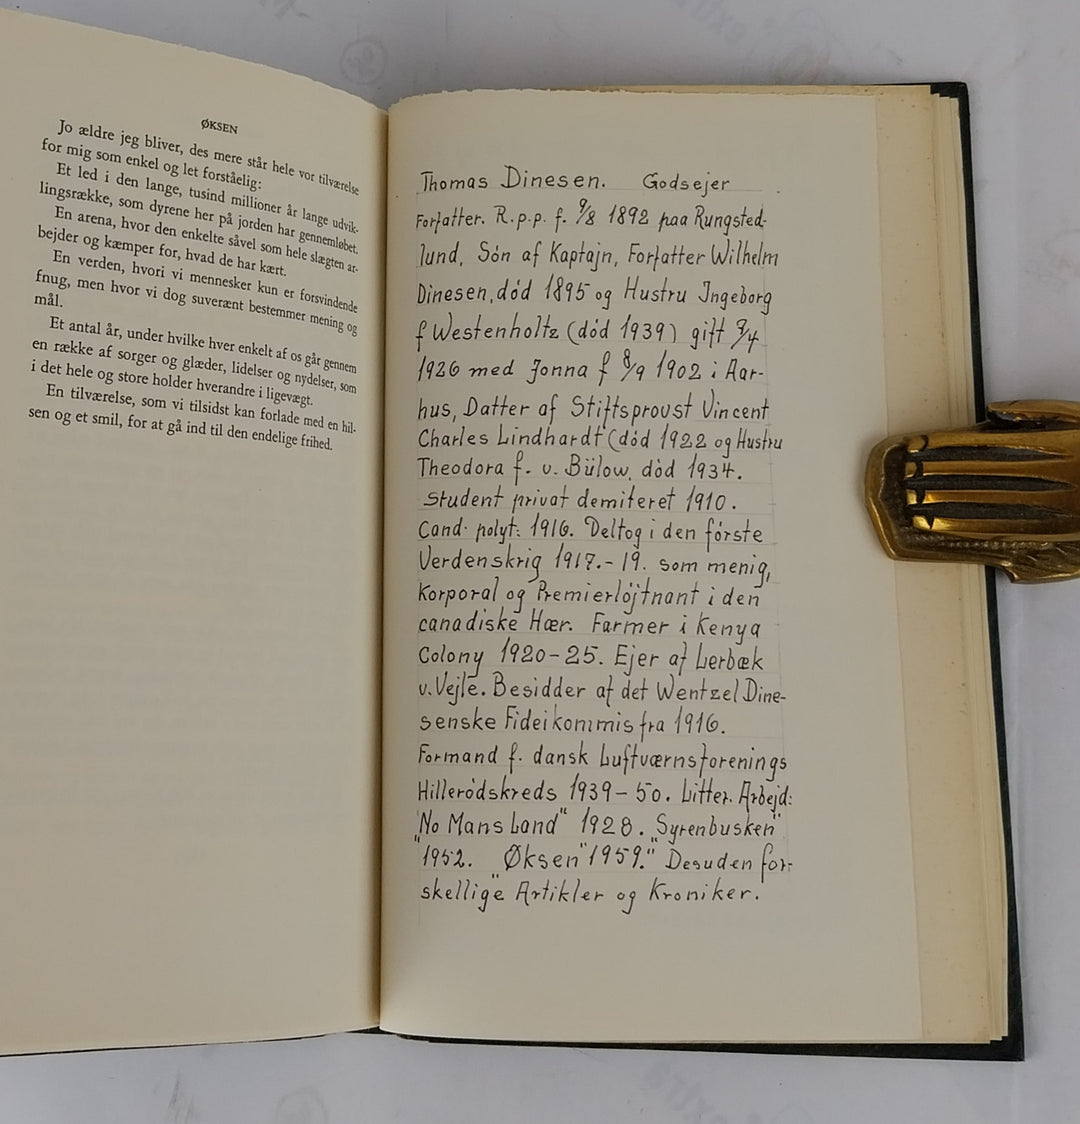 ØKSEN
Jo ældre jeg bliver, des mere står hele vor tilværelse
for mig som enkel og let forståelig:
Et led i den lange, tusind millioner år lange udvik-
lingsrække, som dyrene her på jorden har gennemløbet.
En arena, hvor den enkelte såvel som hele slægten ar-
bejder og kæmper for, hvad de har kært.
En verden, hvori vi mennesker kun er forsvindende
fnug, men hvor vi dog suverænt bestemmer mening og
mål.
Et antal år, under hvilke hver enkelt af os går gennem
en række af sorger og glæder, lidelser og nydelser, som
i det hele og store holder hverandre i ligevægt.
En tilværelse, som vi tilsidst kan forlade med en hil-
sen og et smil, for at gå ind til den endelige frihed.
Thomas Dinesen. Godsejer
Forfatter. R.p.p. f. 9/8 1892 paa Rungsted-
lund, Són af Kaptajn, Forfatter Wilhelm
Dinesen, dód 1895 og Hustru Ingeborg
f Westenholtz (dód 1939) gift 9/4
1926 med Jonna f 8/9 1902 i Aar-
hus, Datter af Stiftsprovst Vincent
Charles Lindhardt (dód 1922 og Hustru
Theodora f. v. Bülow, dód 1934.
Student privat demiteret 1910.
Cand. polyt: 1916. Deltog i den fórste
Verdenskrig 1917.-19. som menig,
Korporal og Premierlójtnant i den
canadiske Hær. Farmer i Kenya
Colony 1920-25. Ejer af Lerbæk
v. Vejle. Besidder af det Wentzel Dine-
senske Fideikommis fra 1916.
Formand f. dansk Luftværnsforenings
Hilleródskreds 1939-50. Litter. Arbejd:
"No Mans Land" 1928. Syrenbusken"
"1952. Øksen" 1959." Desuden for-
skellige" Artikler og Kroniker.